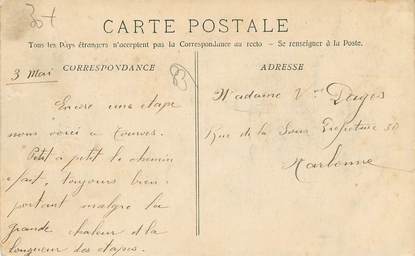 304
CARTE POSTALE
Tous les Pays étrangers n'acceptent pas la Correspondance au recto — Se renseigner à la Poste.
CORRESPONDANCE
3 Mai
Encore une étape
nous voici à Tourves.
Petit à petit le chemin
se fait, toujours bien
portant malgré la
grande chaleur et la
longueur des étapes.
ADRESSE
Madame Vve
Rue de la Sous Préfecture 30
Narbonne